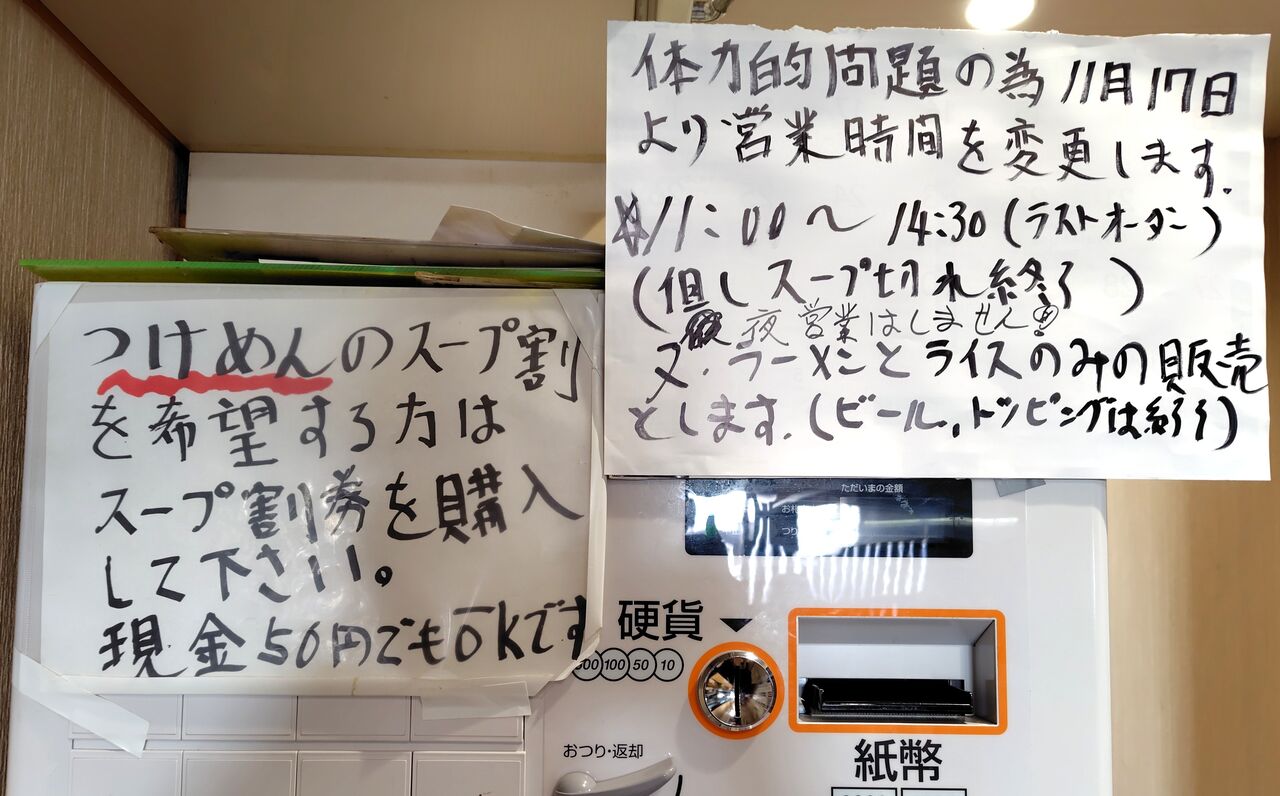 体力的問題の為11月17日
より営業時間を変更します.
11:00〜14:30(ラストオーダー)
(但しスープ切れ終了)
夜営業はしません
又.ラーメンとライスのみの販売
とします.(ビール,トッピングは終了)
つけめんのスープ割
を希望する方は
スープ割券を購入
して下さい。
現金50円でもOKです
ただいまの金額
つり
硬貨
500 100 50 10
おつり・返却
紙幣